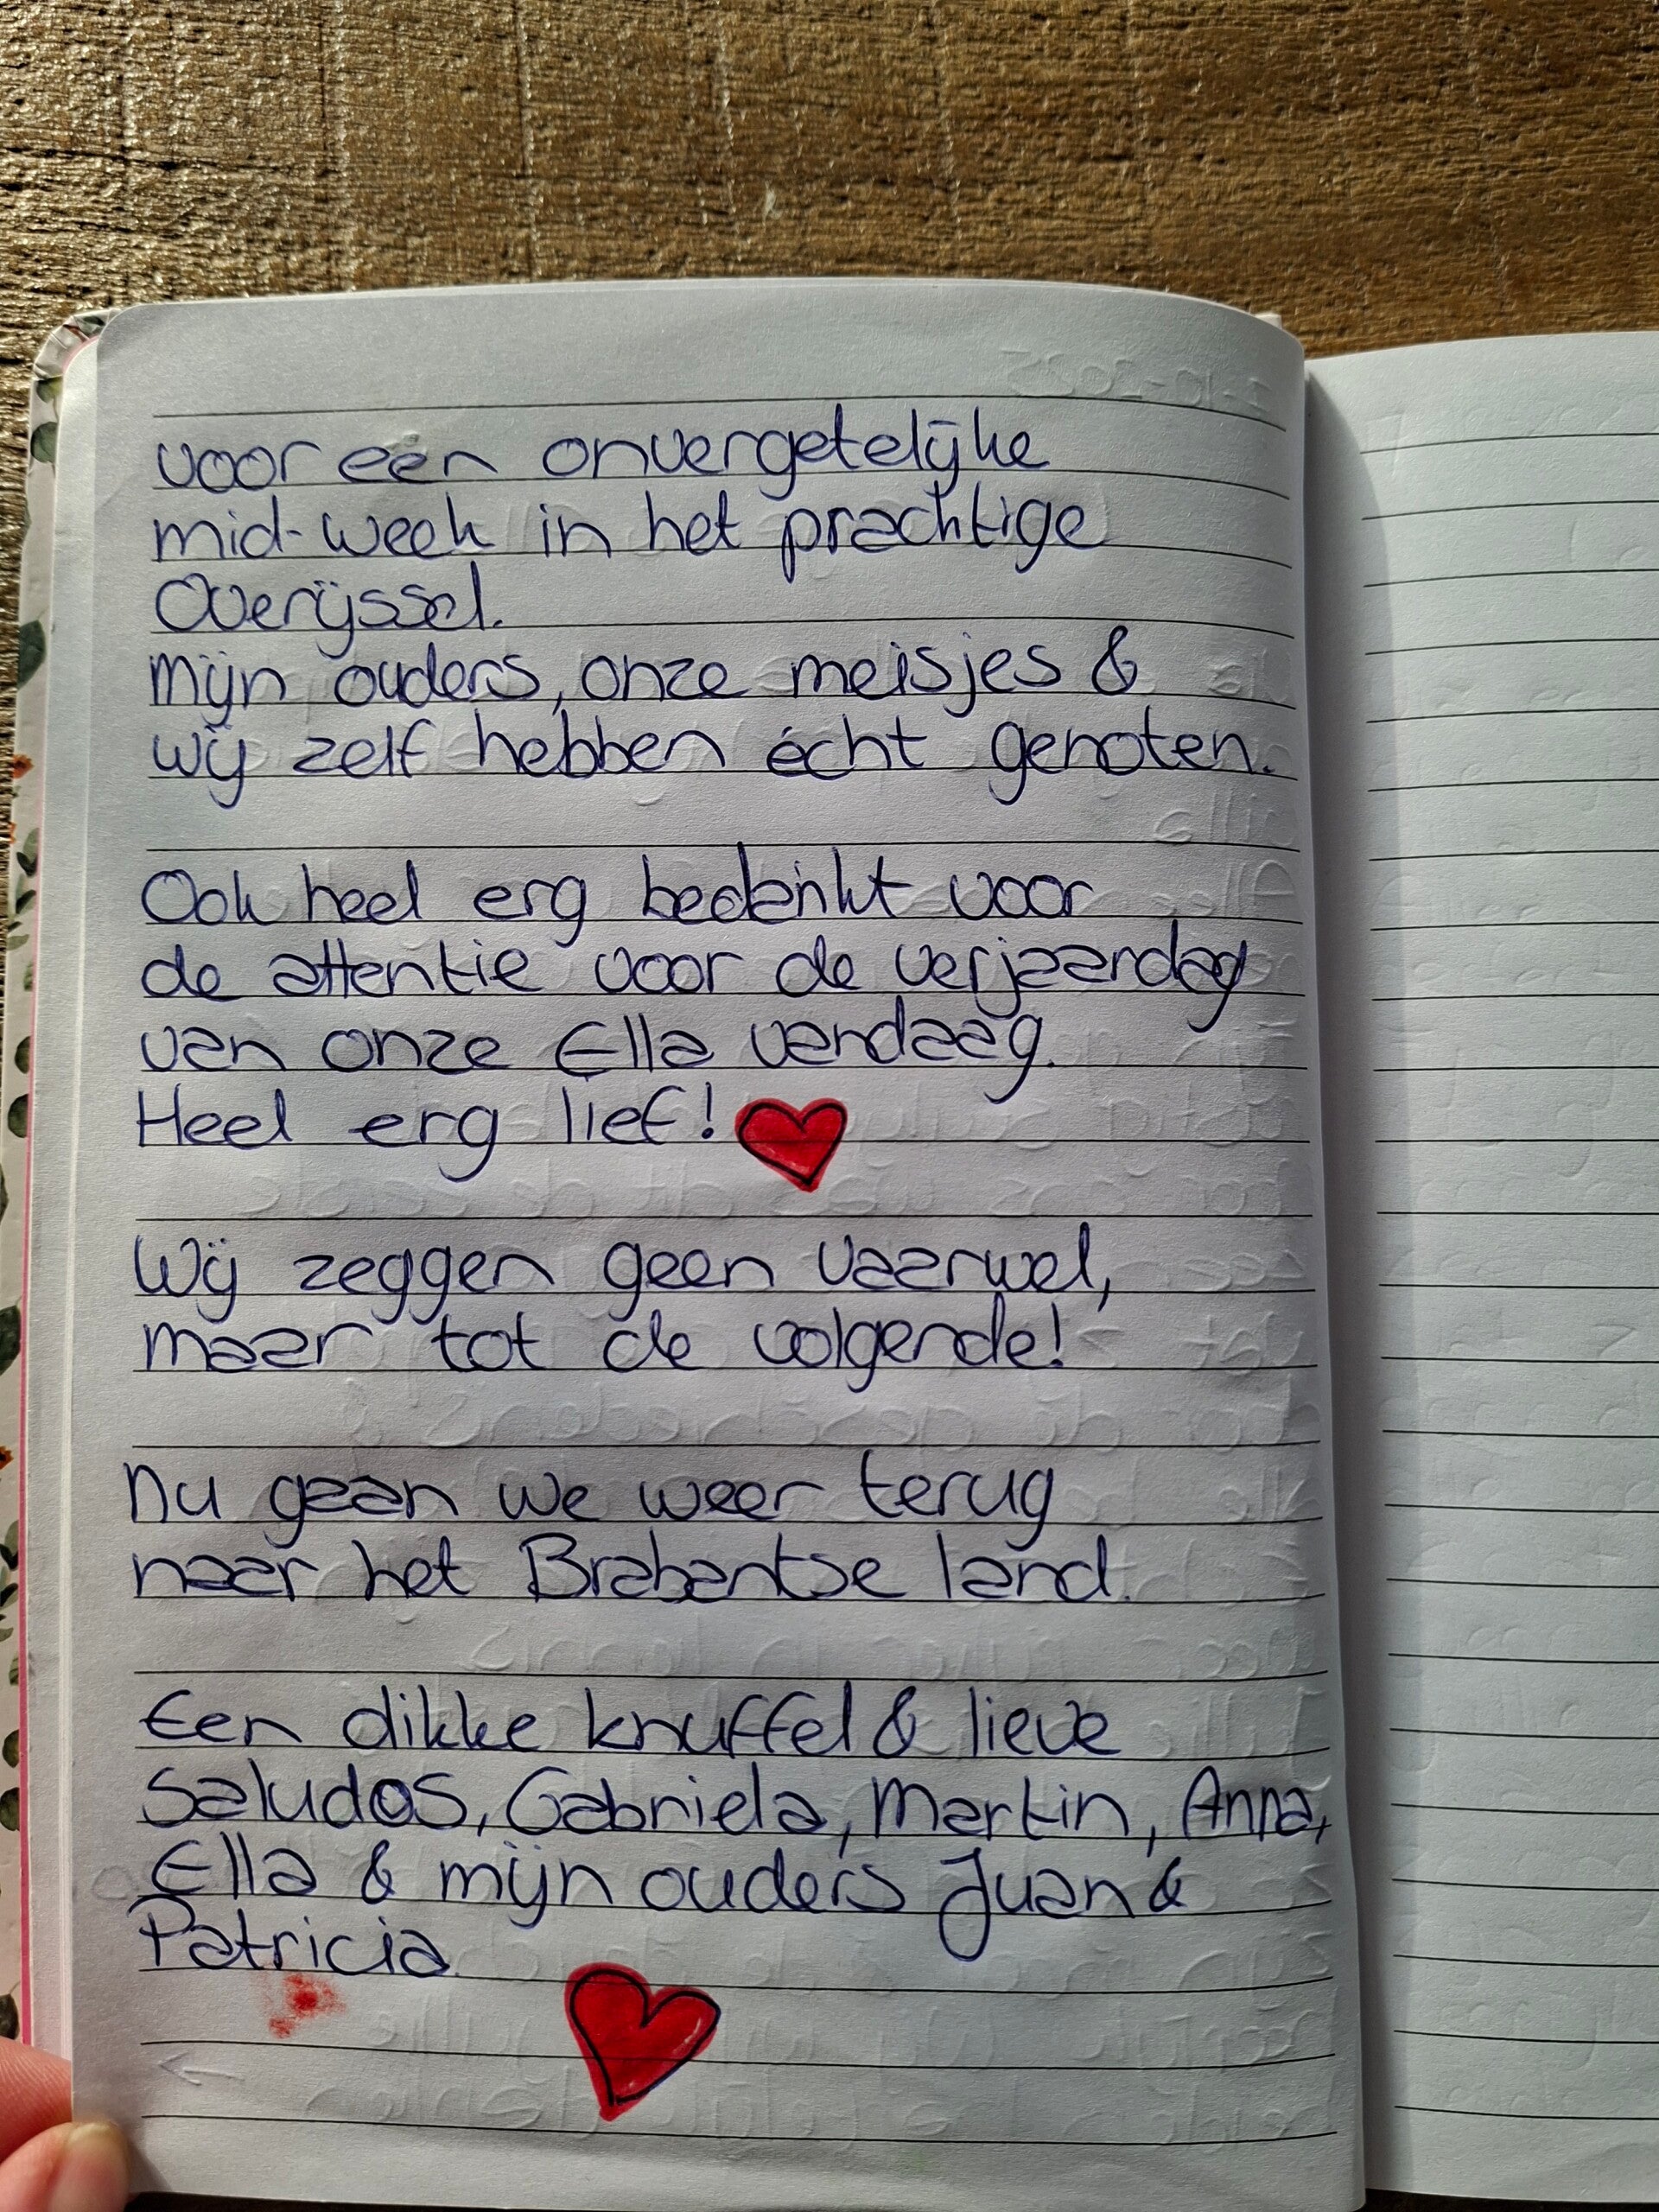 voor een onvergetelijke
mid-week in het prachtige
Overijssel.
Mijn ouders, onze meisjes &
wij zelf hebben écht genoten.
Ook heel erg bedankt voor
de attentie voor de verjaardag
van onze Ella vandaag.
Heel erg lief!
Wij zeggen geen vaarwel,
maar tot de volgende!
Nu gaan we weer terug
naar het Brabantse land.
Een dikke knuffel & lieve
Saludos, Gabriela, Martin, Anna,
Ella & mijn ouders Juan &
Patricia